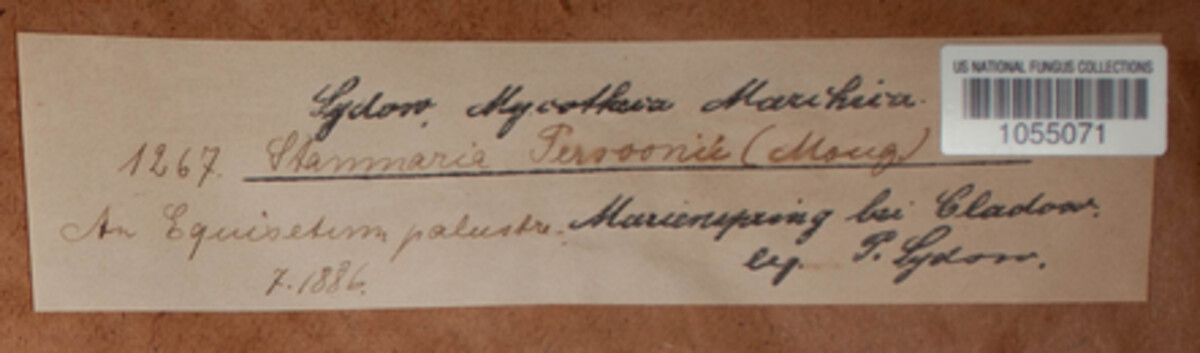 US NATIONAL FUNGUS COLLECTIONS
1055071
Sydow, Mycotheca Marchica.
1267. Stammaria Persoonii (Moug)
An Equisetum palustre. Marienspring bei Cladow.
leg. P. Sydow.
7.1886.